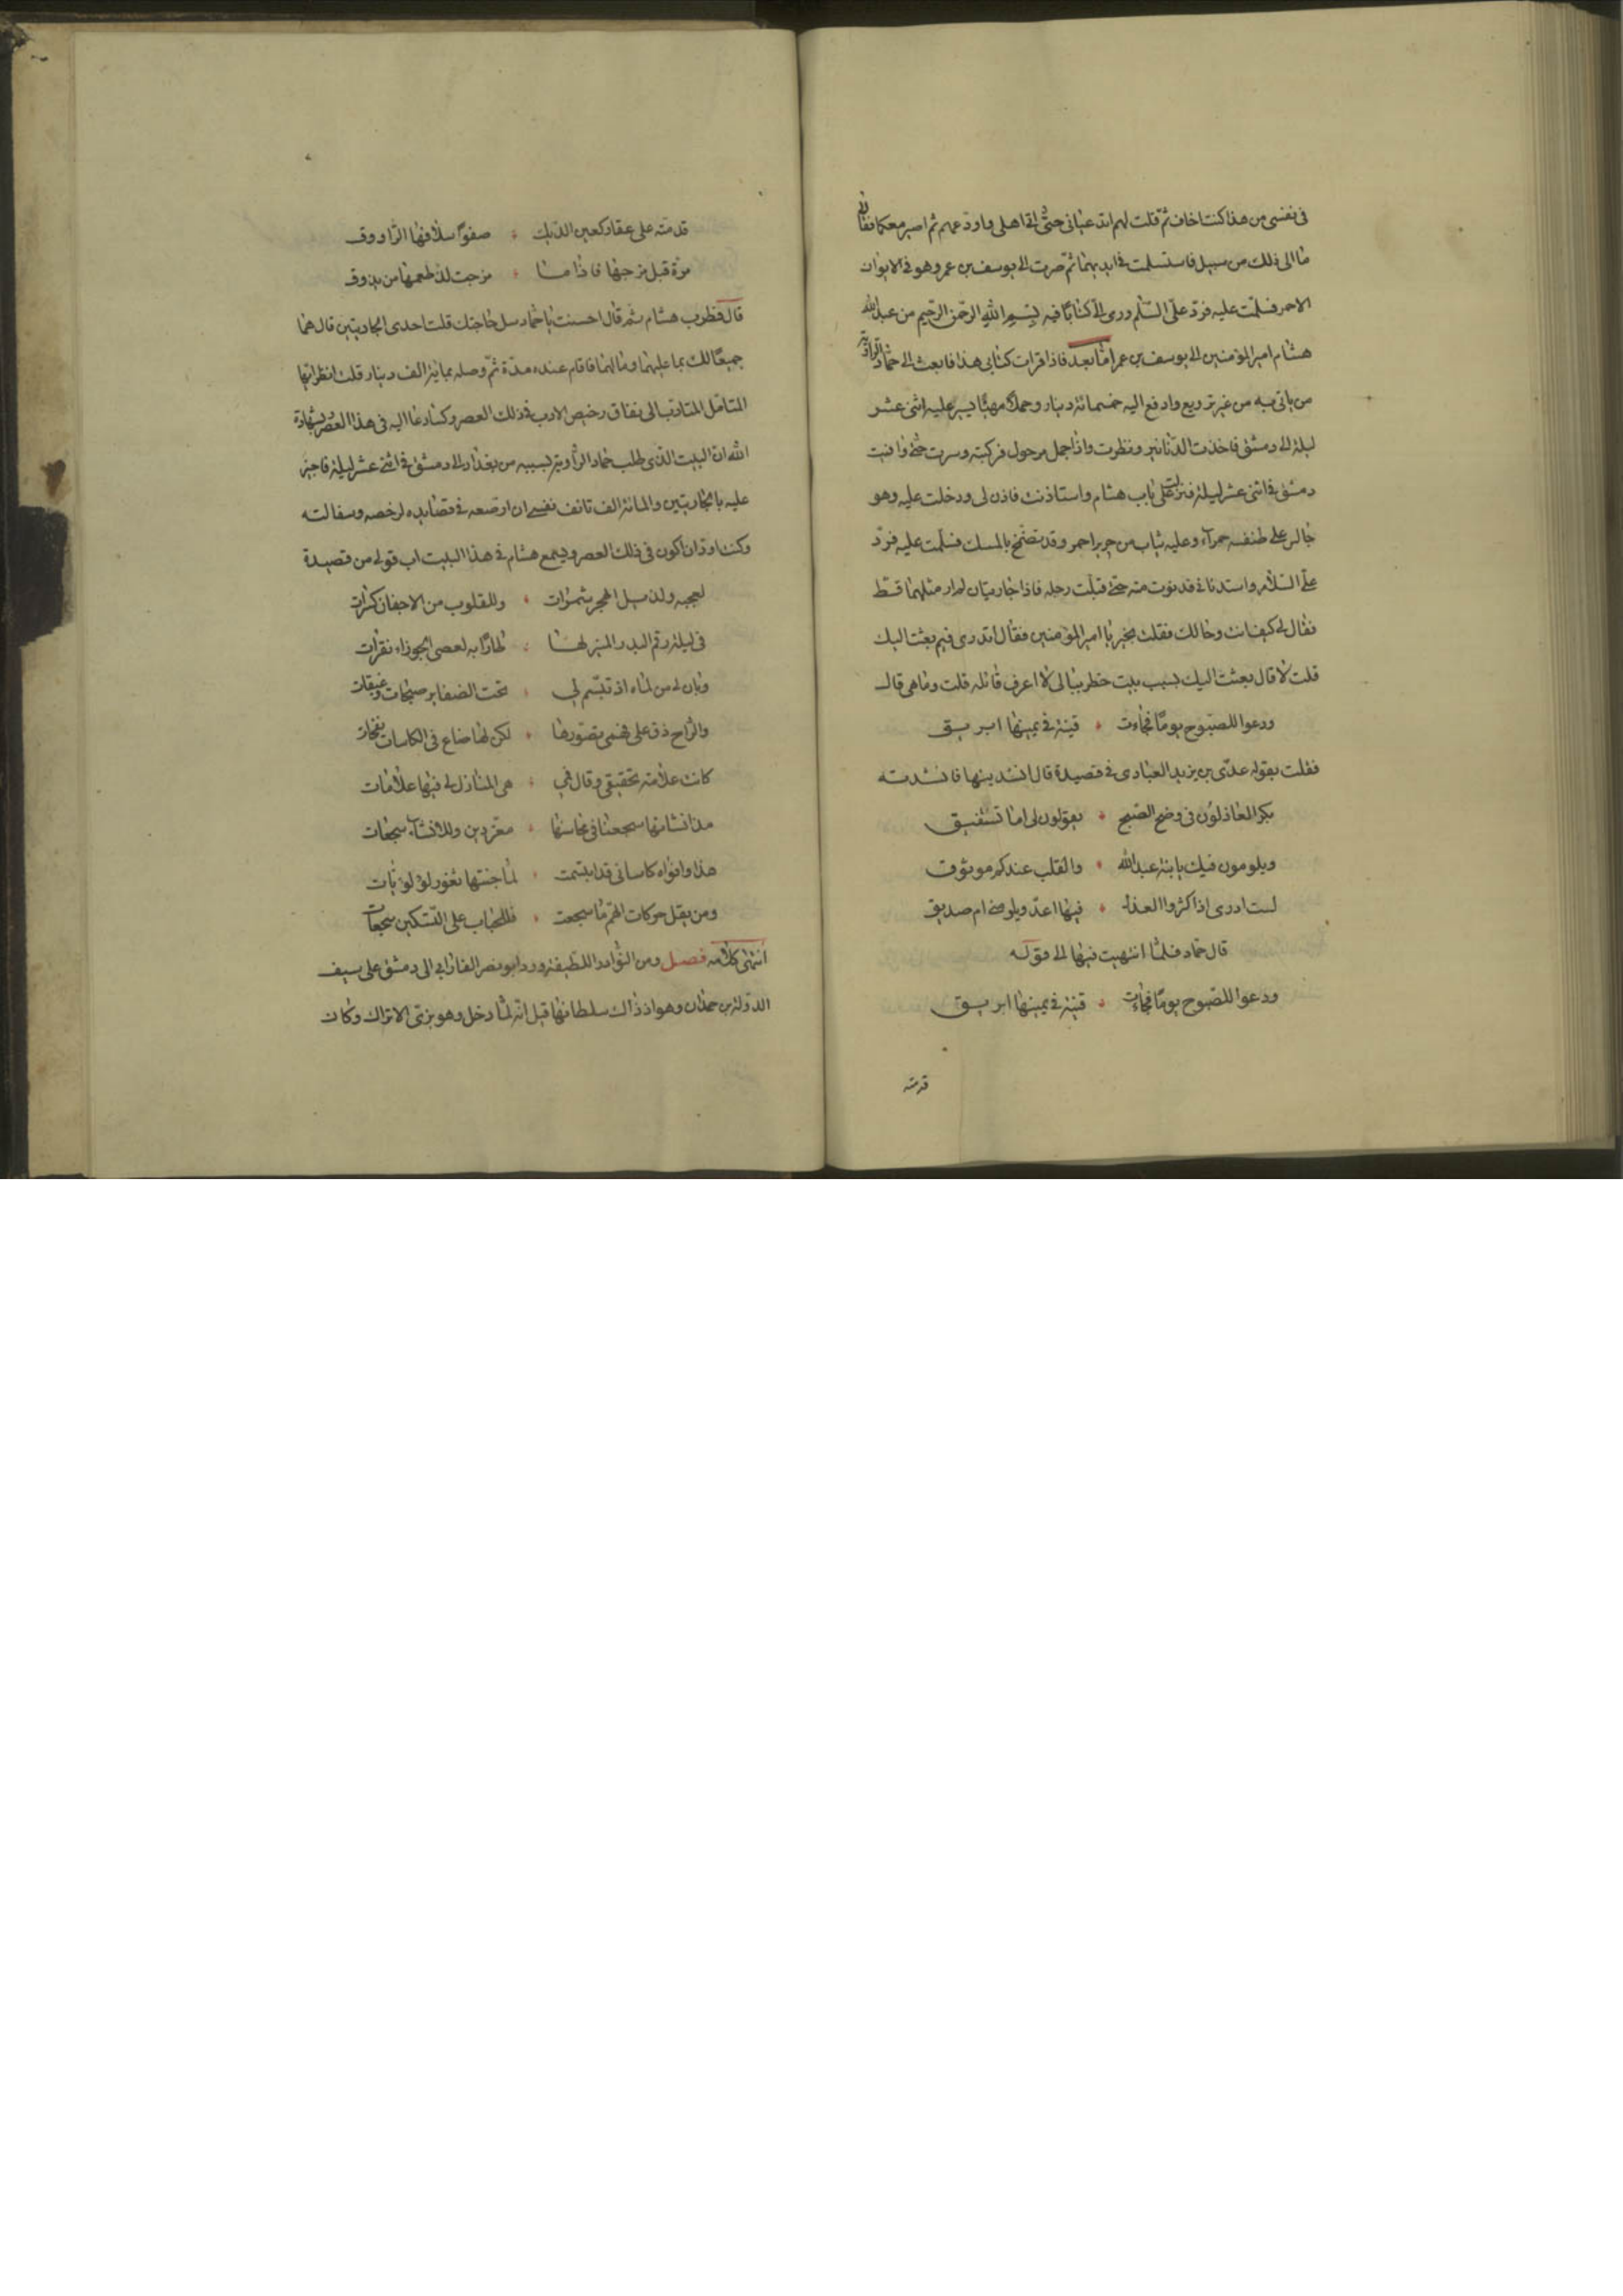 فى نفسى من هذا كنت اخاف ثمّ قلت لهم اتدعانى حتى اتى اهلى واودعهم ثم اصير معكما فقالا
ما الى ذلك من سبيل فاستسلمت فى ايديهما ثمّ صرت الى يوسف بن عمر وهو فى الايوان
الاحمر فسلّمت عليه فردّ علىّ السّلام ورمى الىّ كتابًا فيه بسم الله الرّحمن الرّحيم من عبد الله
هشام امير المؤمنين الى يوسف بن عمر امّا بعد فاذا قرات كتابى هذا فابعث الى حمّاد الرّاوية
من ياتى به من غير ترويع وادفع اليه خمسمائة دينار وجملًا مهريًّا يسير عليه اثنى عشر
ليلة الى دمشق فاخذت الدّنانير ونظرت واذا جمل مرحول فركبته وسرت حتّى وافيت
دمشق فى اثنى عشر ليلة فنزلت على باب هشام واستاذنت فاذن لى ودخلت عليه وهو
جالس على طنفسه حمرآء وعليه ثياب من حرير احمر وقد تضمّخ بالمسك فسلّمت عليه فردّ
علىّ السّلام واستدنانى فدنوت منه حتّى قبّلت رجله فاذا جاريتان لم ار مثلهما قطّ
فقال لى كيف انت وحالك فقلت بخير يا امير المؤمنين فقال اتدرى فيم بعثت اليك
قلت لا قال بعثت اليك بسبب بيت خطر ببالى لا اعرف قائله قلت وما هى قال
ودعوا للصّبوح يومًا فجاءت ۰ قينة فى يمينها ابريق
فقلت يقوله عدّى بن يزيد العبادى فى قصيدة قال انشدينها فانشدته
بكر العاذلون فى وضح الصّبح ۰ يقولون لى اما تستفيق
ويلومون فيك يا ابنة عبد الله ۰ والقلب عندكم موثوق
لست ادرى اذا كثروا العذل ۰ فيها اعدّو يلومنى ام صديق
قال حماد فلمّا انتهيت فيها الى قوله
ودعوا للصّبوح يومًا فجاءت ۰ قينة فى يمينها ابريق
قدمته
قدمته على عقار كعين الدّيك ۰ صفوًا سلافها الرّاووق
مزة قبل مزجها فاذا ما ۰ مزجت لذّ طعمها من يذوق
قال فطرب هشام ثمّ قال احسنت يا حمّاد سل حاجتك قلت احدى الجاريتين قال هما
جميعًا لك بما عليهما وما لهما فاقام عنده مدّة ثمّ وصله بماية الف دينار قلت انظر ايّها
المتامّل المتادّب الى نفاق رخيص الادب فى ذلك العصر وكساد غاليه فى هذا العصر بشهادة
الله انّ البيت الّذى طلب حماد الرّاوية بسببه من بغداد الى دمشق فى اثنى عشر ليلة فاجيز
عليه بالجاريتين والمائة الف تانف نفسى ان ارصعه فى قصايدى لرخصه وسفالته
وكنت اودّ ان اكون فى ذلك العصر ويسمع هشام فى هذا البيت اب قولى من قصيدة
وللقلوب من الاجفان كسرات
فى ليلة رقم البدر المنير لها
وبان لى من لماه اذ تبسّم لى ۰ تحت الضفاير صبحات وغبقات
والرّاح دق على فهمى تصوّرها ۰ لكن لها ضاع فى الكاسات نفحات
كانت علامته تحقيقى وقال فمى ۰ هى المنازل لى فيها علامات
مذ انشاتها سجعنا فى محاسنها ۰ مغرّدين وللانشاء سجعات
هذا وافواه كاساتى قد ابتسمت
ومن يقل حركات الهمّ ما سجعت ۰ فللحباب على التّسكين سجعات
انتهى كلامه فصل ومن النّوادر اللّطيفة ورد ابو نصر الفارابى الى دمشق على سيف
الدّولة بن حمدان وهو اذ ذاك سلطانها قيل انّه لمّا دخل وهو بزىّ الاتراك وكان